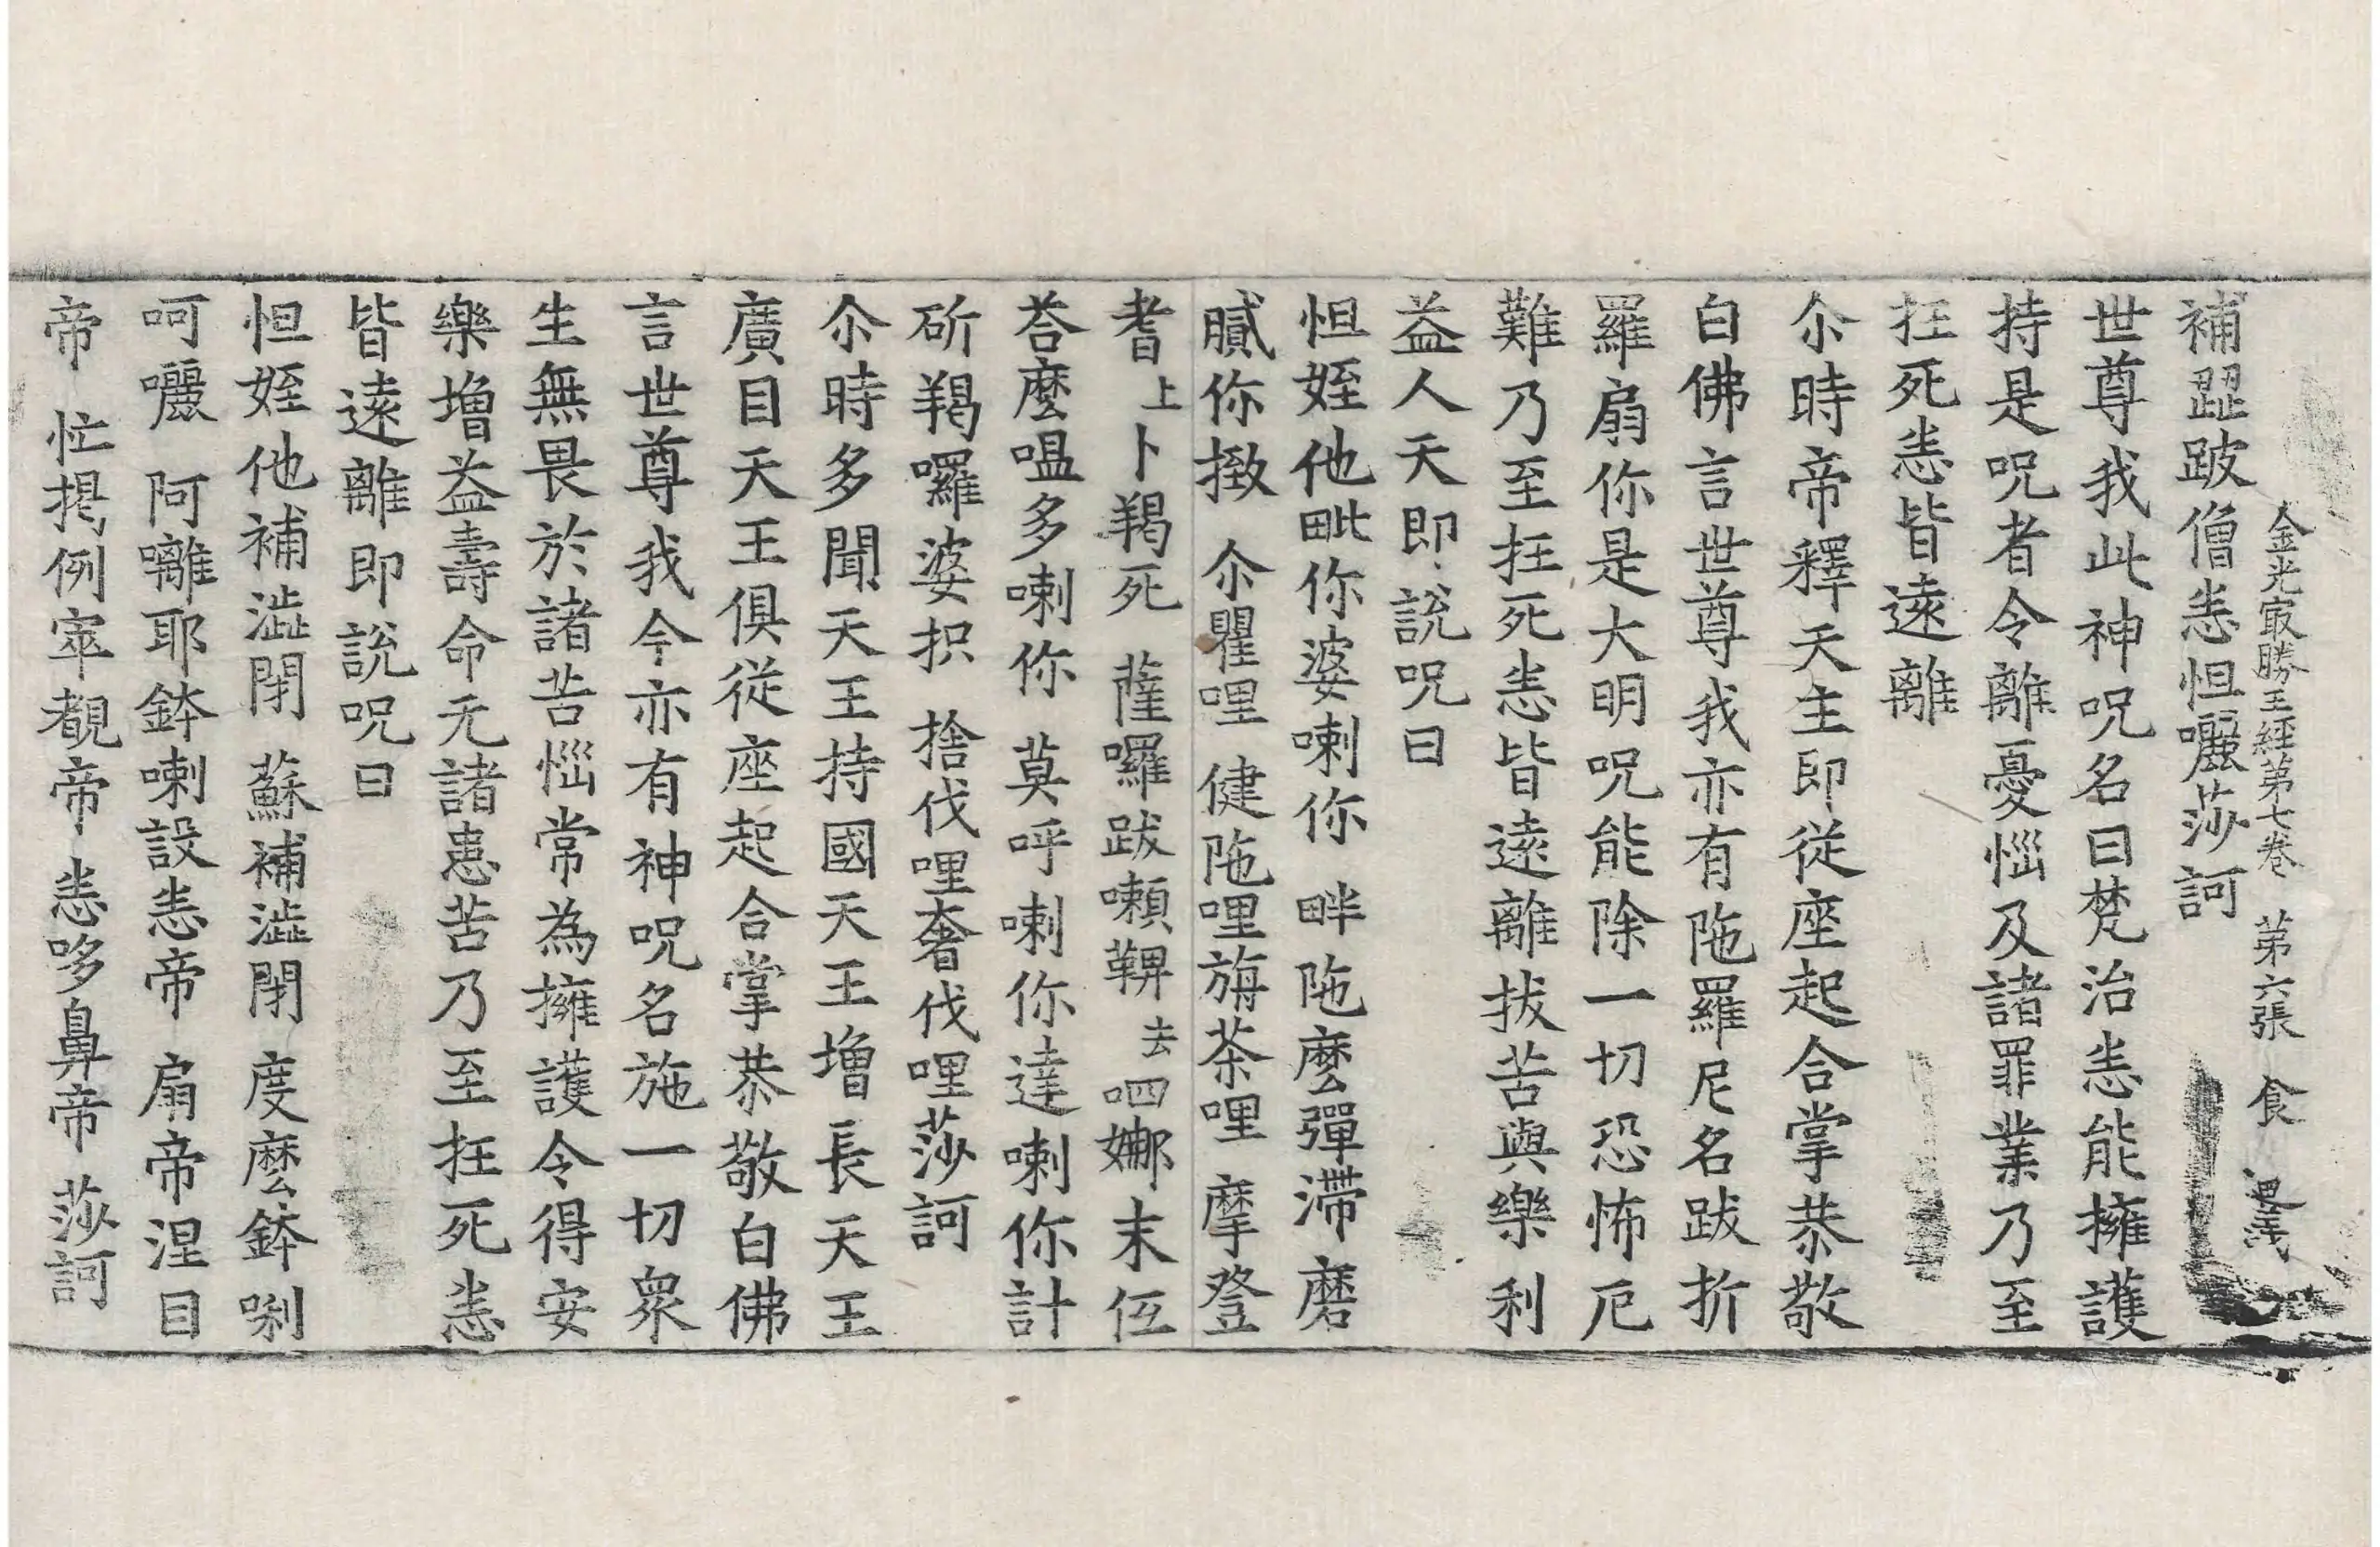 金光㝡勝王經第七卷 第六張 食
補𮛫跛僧恙怛囇莎訶
世尊我此神呪名曰梵治恙能擁護
持是呪者令離憂惱及諸罪業乃至
抂死恙皆遠離
尒時帝釋天主即從座起合掌恭敬
白佛言世尊我亦有陁羅尼名跋折
羅扇你是大明呪能除一切恐怖厄
難乃至抂死恙皆遠離拔苦與樂利
益人天即說呪曰
怛姪他毗你婆喇你 畔陁麽彈滯磨
膩你㨖 尒瞿哩 健陁哩旃荼哩 摩登
耆上卜羯死 薩囉跋嚬鞞去呬娜末伍
荅麽嗢多喇你 莫呼喇你達喇你計
斫羯囉婆抧 捨伐哩奢伐哩莎訶
尒時多聞天王持國天王增長天王
廣目天王俱從座起合掌恭敬白佛
言世尊我今亦有神呪名施一切衆
生無畏於諸苦惱常為擁護令得安
樂增益壽命无諸患苦乃至抂死恙
皆遠離即說呪曰
怛姪他補澁閇 蘇補澁閇 度麽鉢唎
呵囇 阿囄耶鉢喇設恙帝 扇帝涅目
帝 忙揭例窣覩帝 恙哆鼻帝 莎訶